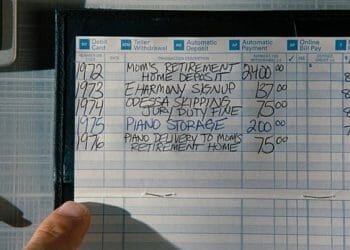 Debit Card Teller Withdrawal Automatic Deposit AP Automatic Payment Online Bill Pay
DATE TRANSACTION DESCRIPTION FEE
1972 MOM'S RETIREMENT 2400 00
HOME DEPOSIT
1973 EHARMONY SIGNUP 137 00
1974 ODESSA SKIPPING 75 00
JURY DUTY FINE
1975 PIANO STORAGE 200 00
1976 PIANO DELIVERY TO MOM'S 75 00
RETIREMENT HOME